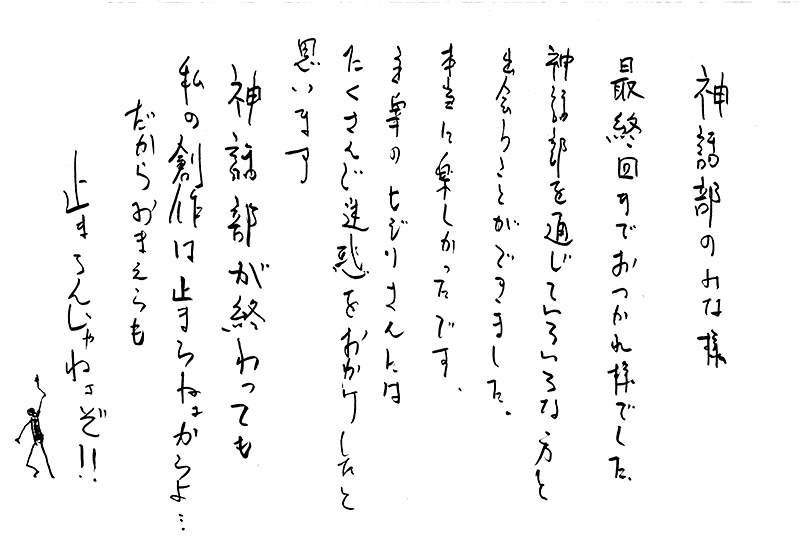 神話部のみな様
最終回までおつかれ様でした。
神話部を通じていろいろな方と
出会うことができました。
本当に楽しかったです。
主宰のヒジリさんには
たくさんご迷惑をおかけしたと
思います
神話部が終わっても
私の創作は止まらねぇからよ…
だからおまえらも
止まるんじゃねぇぞ!!